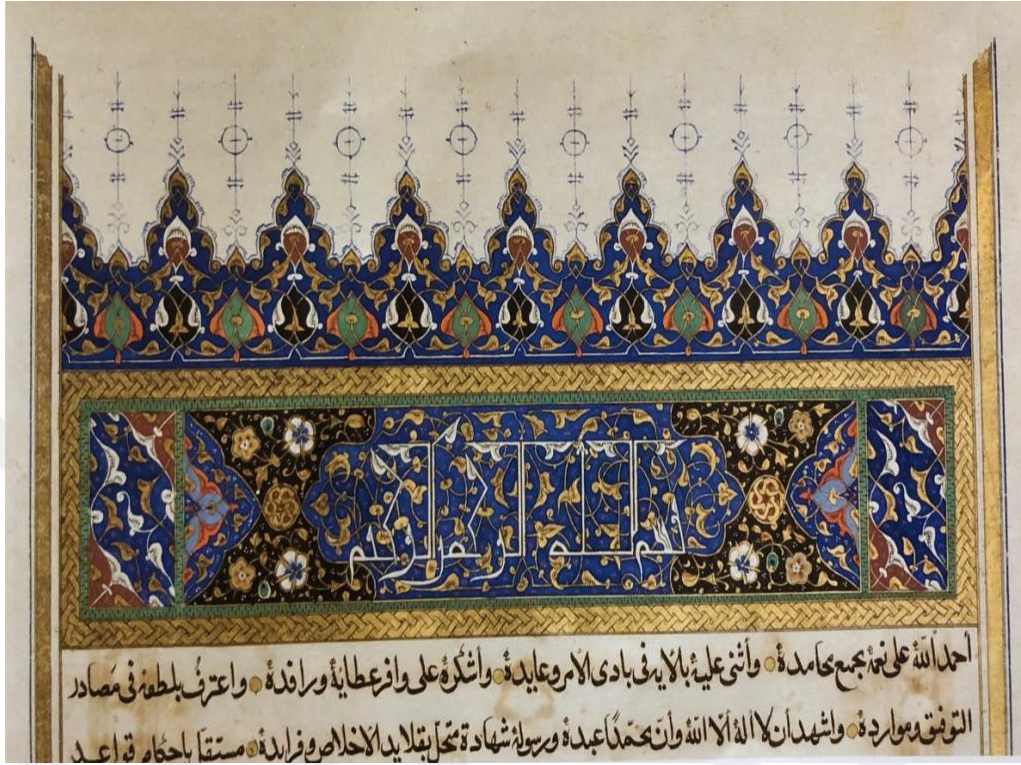 بسم الله الرحمن الرحيم
أحمد الله على نعمه بجميع محامده وأثنى عليه بآلايه فى بادى الأمر وعايده وأشكره على وافر عطايه ورافده واعترف بلطفه فى مصادر
التوفيق وموارده واشهد أن لا اله الا الله وأن محمدًا عبده ورسوله شهادة متحل بقلايد الاخلاص وفرايده مستقل باحكام قواعد